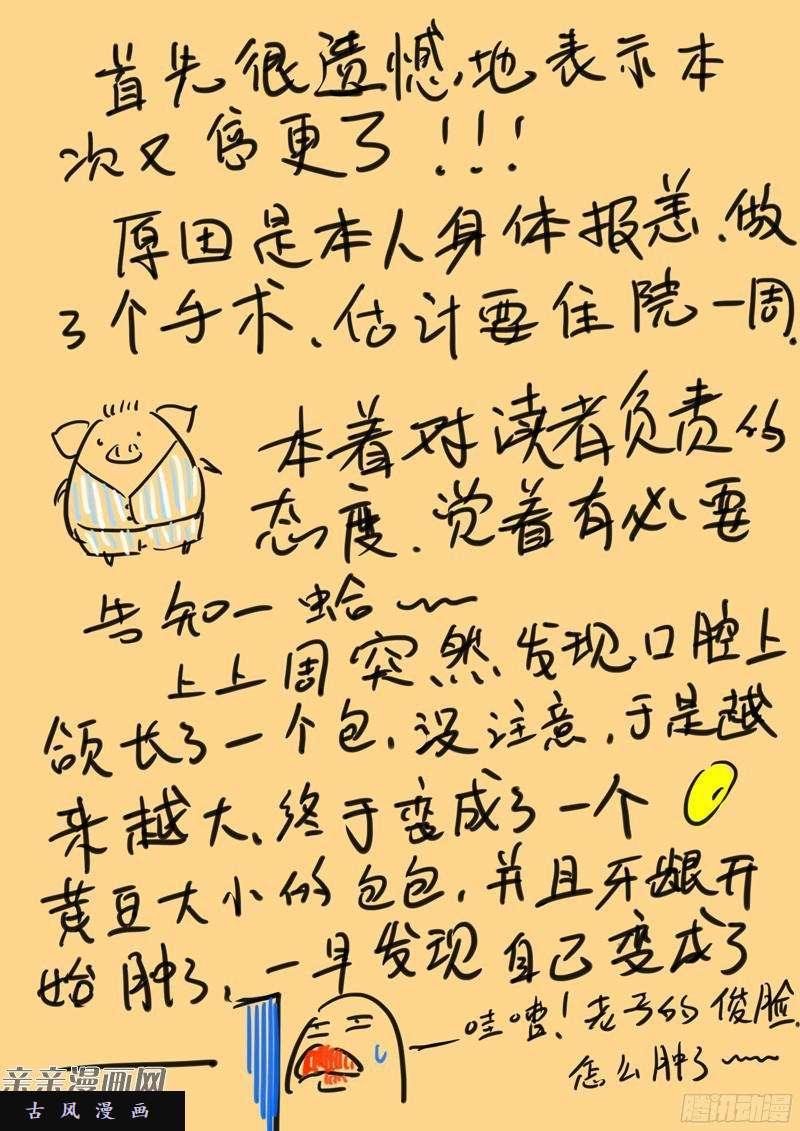 首先很遗憾地表示本
次又停更了!!!
原因是本人身体报恙,做
了个手术,估计要住院一周.
本着对读者负责的
态度,觉着有必要
告知一蛤~~
上上周突然发现口腔上
颌长了一个包,没注意,于是越
来越大,终于变成了一个
黄豆大小的包包,并且牙龈开
始肿了,一早发现自己变成了
哇嘈!老子的俊脸
怎么肿了~~
亲亲漫画网
古风漫画
腾讯动漫